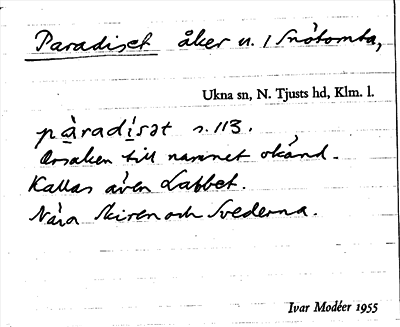 Paradiset åker n. i Snötomta,
Ukna sn, N. Tjusts hd, Klm. l.
pàradísət s. 113.
Orsaken till namnet okänd.
Kallas även Labbet.
Nära Skiren och Svederna.
Ivar Modéer 1955